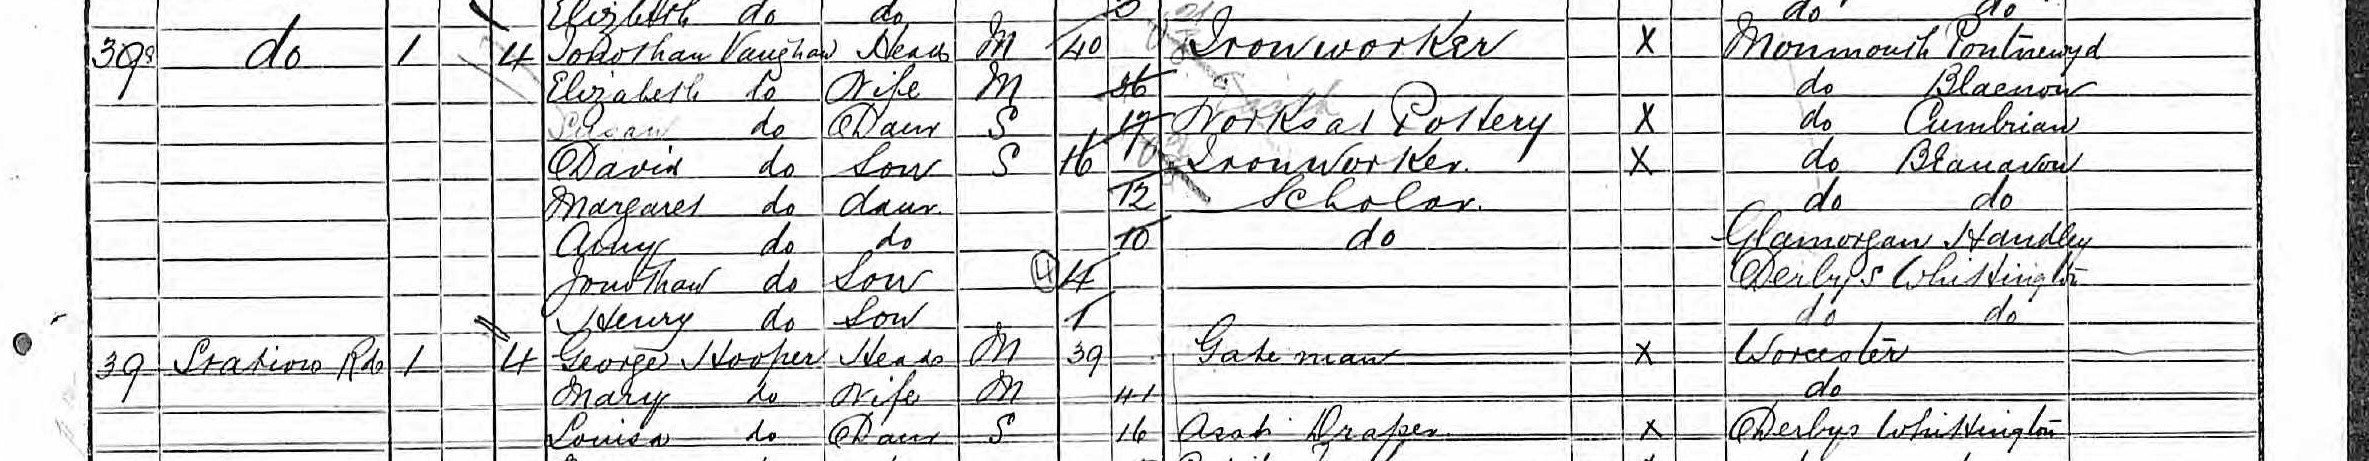 Elizbeth do do do do
398 do 1 4 Jonothan Vaughan Head M 40 Ironworker X Monmouth Pontnewyd
Elizabeth do Wife M 36 do Blaenow
Susan do Daur S 17 Works at Pottery X do Cumbrian
David do Son S 16 Ironworker. X do Blanavon
Margaret do daur. 12 Scholar. do do
Amy do do 10 do Glamorgan Handley
Jonothan do Son 4 4 Derbys Whittington
Henry do Son 1 do do
39 Station Rd 1 4 George Hooper Head M 39 Gateman X Worcester
Mary do Wife M 41 do
Louisa do Daur S 16 Draper X Derbys Whittington